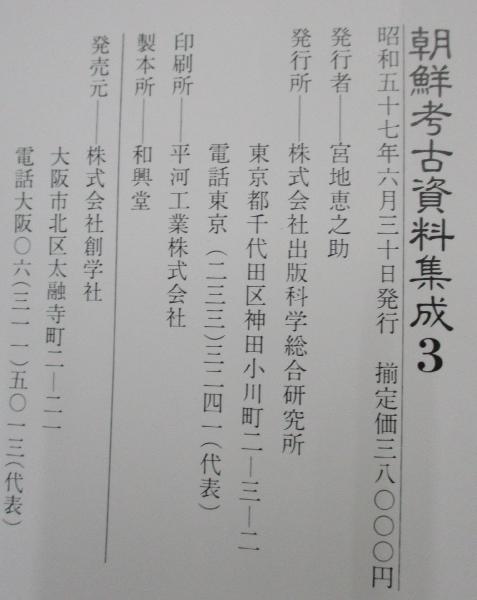 朝鮮考古資料集成3
昭和五十七年六月三十日発行 揃定価三八〇〇〇〇円
発行者――宮地恵之助
発行所――株式会社出版科学総合研究所
東京都千代田区神田小川町二―三―二
電話東京(二三三)三二四一(代表)
印刷所――平河工業株式会社
製本所――和興堂
発売元――株式会社創学社
大阪市北区太融寺町二―二一
電話大阪〇六(三一一)五〇一三(代表)